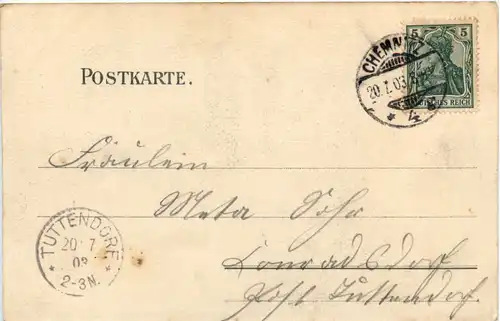 5 5
DEUTSCHES REICH
CHEMNITZ
20.7.03
* 4
POSTKARTE.
Fräulein
Meta Sohr
Conradsdorf
Post Tuttendorf.
TUTTENDORF
20 7
03
* 2-3N. *